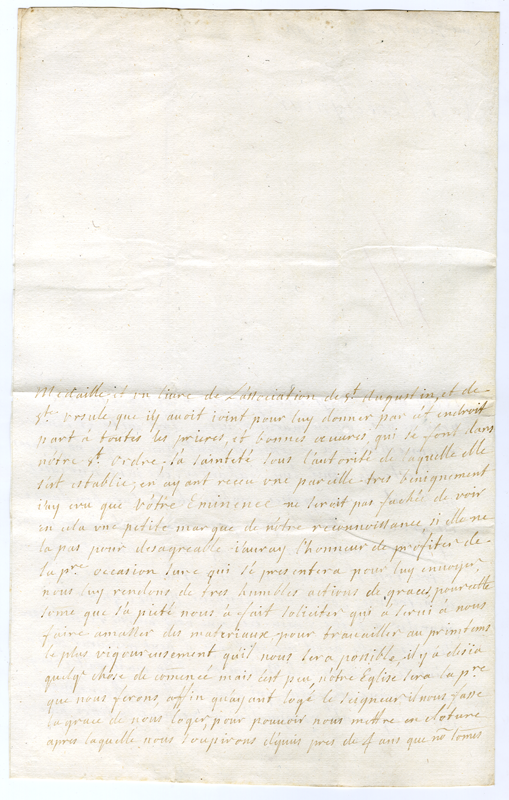 Médaille, et un livre de L'association de St. Augustin, et de
Ste. Ursule, que j'y avoit joint pour luy donner par cét endroit
part à toutes les prieres, et bonnes œuvres, qui se font dans
nôtre St. Ordre; sa sainteté sous l'autorité de laquelle elle
est establie, en ayant receu une pareille tres bénignement
j'ay cru que Vôtre Eminence ne seroit pas fachée de voir
en cela une petite marque de nôtre reconnoissance si elle ne
la pas pour desagreable j'auray l'honneur de profiter de
la pre. occasion sure qui se presentera pour luy envoyer.
nous luy rendons de tres humbles actions de graces pour cette
some que sa pieté nous à fait soliciter qui à servi à nous
faire amasser des materiaux pour travailler au printems
le plus vigoureusement qu'il nous sera possible, il y à desia
quelq. chose de comencé mais c'est peu nôtre Eglise sera la pre.
que nous ferons, affin qu'ayant logé le Seigneur il nous fasse
la grace de nous loger, pour pouvoir nous mettre en clôture
apres laquelle nous soupirons d'épuis pres de 4 ans que